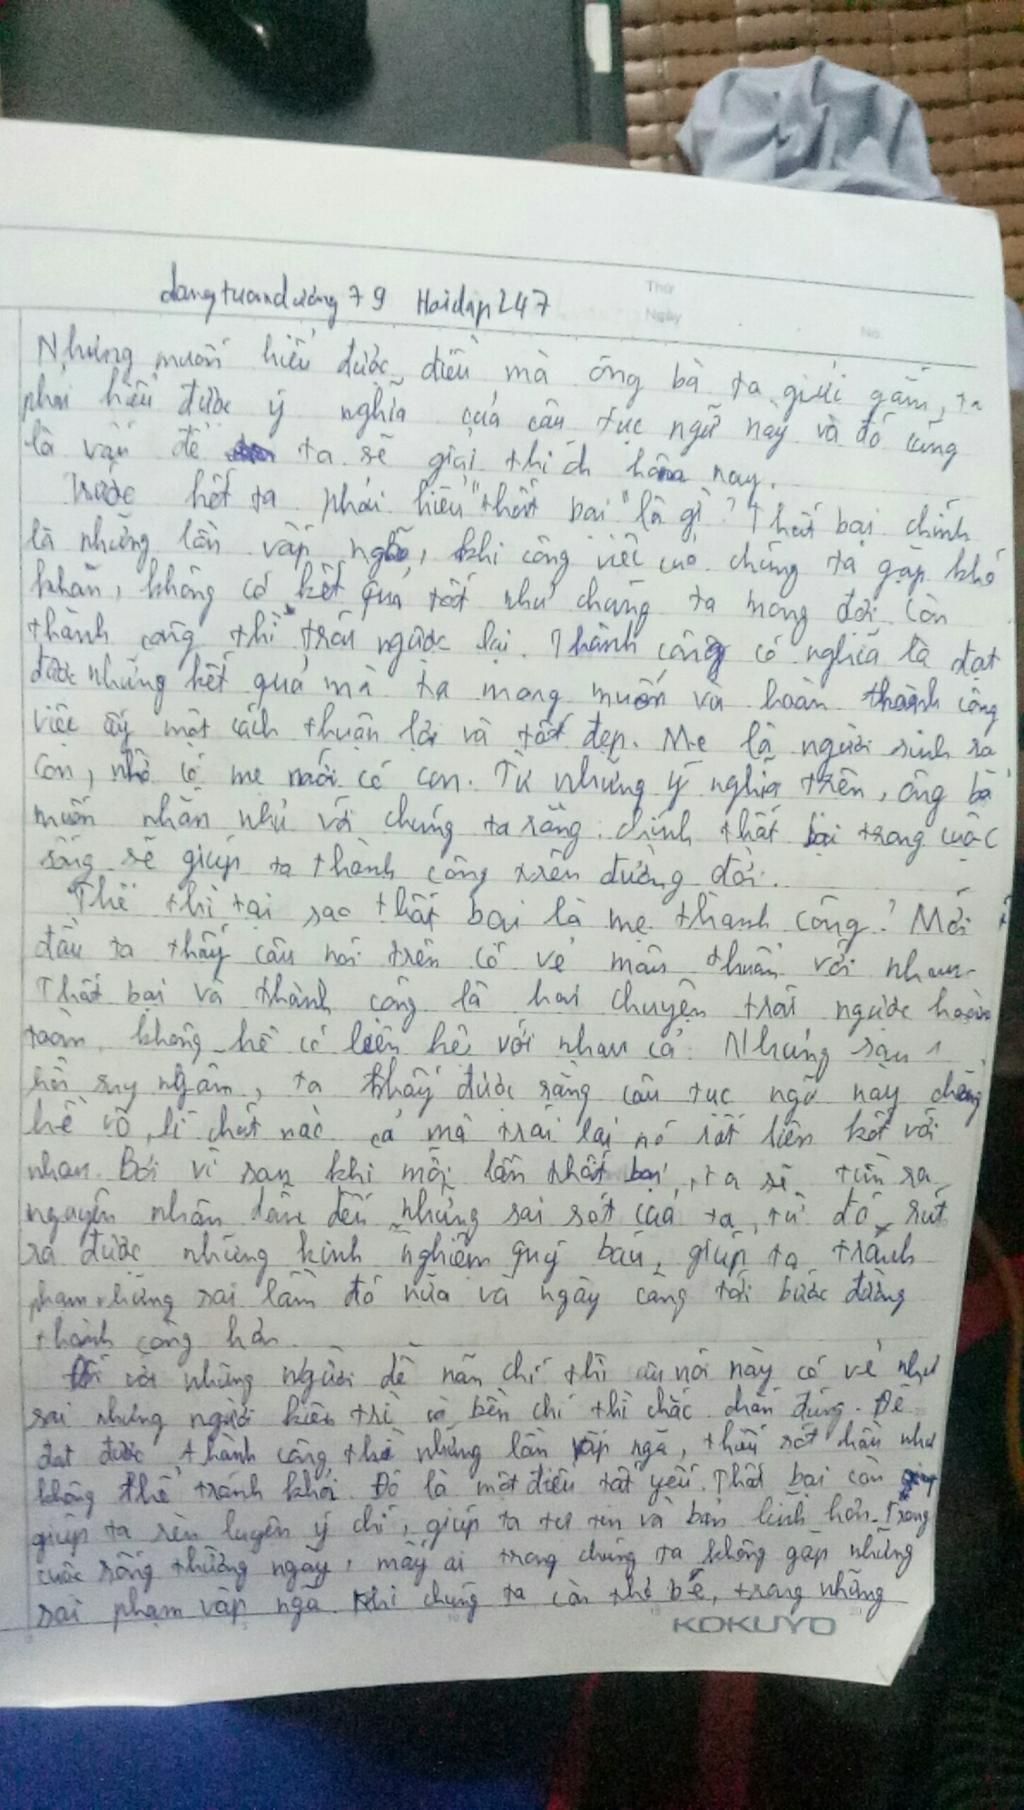 dangtuanduong79 Hoidap247
Thứ
Ngày
No.
Nhưng muốn hiểu được điều mà ông bà ta gửi gắm, ta
phải hiểu được ý nghĩa của câu tục ngữ này và đó cũng
là vấn đề ta sẽ giải thích hôm nay.
Trước hết ta phải hiểu "thất bại" là gì? Thất bại chính
là những lần vấp ngã, khi công việc của chúng ta gặp khó
khăn, không có kết quả tốt như chúng ta mong đợi. Còn
thành công thì trái ngược lại. Thành công có nghĩa là đạt
được những kết quả mà ta mong muốn và hoàn thành công
việc ấy một cách thuận lợi và tốt đẹp. Mẹ là người sinh ra
con, nhờ có mẹ mới có con. Từ những ý nghĩa trên, ông bà
muốn nhắn nhủ với chúng ta rằng: chính thất bại trong cuộc
sống sẽ giúp ta thành công trên đường đời.
Thế thì tại sao thất bại là mẹ thành công? Mới
đầu ta thấy câu nói trên có vẻ mâu thuẫn với nhau.
Thất bại và thành công là hai chuyện trái ngược hoàn
toàn, không hề có liên hệ với nhau cả. Nhưng sau 1
hồi suy ngẫm, ta thấy được rằng câu tục ngữ này chẳng
hề vô lí chút nào cả mà trái lại nó rất liên kết với
nhau. Bởi vì sau khi mỗi lần thất bại, ta sẽ tìm ra
nguyên nhân dẫn đến những sai sót của ta, từ đó rút
ra được những kinh nghiệm quý báu, giúp ta tránh
phạm những sai lầm đó nữa và ngày càng tới bước đường
thành công hơn.
Đối với những người dễ nản chí thì câu nói này có vẻ như
sai nhưng người kiên trì và bền chí thì chắc chắn đúng. Để
đạt được thành công thì những lần vấp ngã, thiếu sót hầu như
không thể tránh khỏi. Đó là một điều tất yếu. Thất bại còn
giúp ta rèn luyện ý chí, giúp ta tự tin và bản lĩnh hơn. Trong
cuộc sống thường ngày, mấy ai trong chúng ta không gặp những
sai phạm vấp ngã. Khi chúng ta còn thơ bé, trong những
KOKUYO